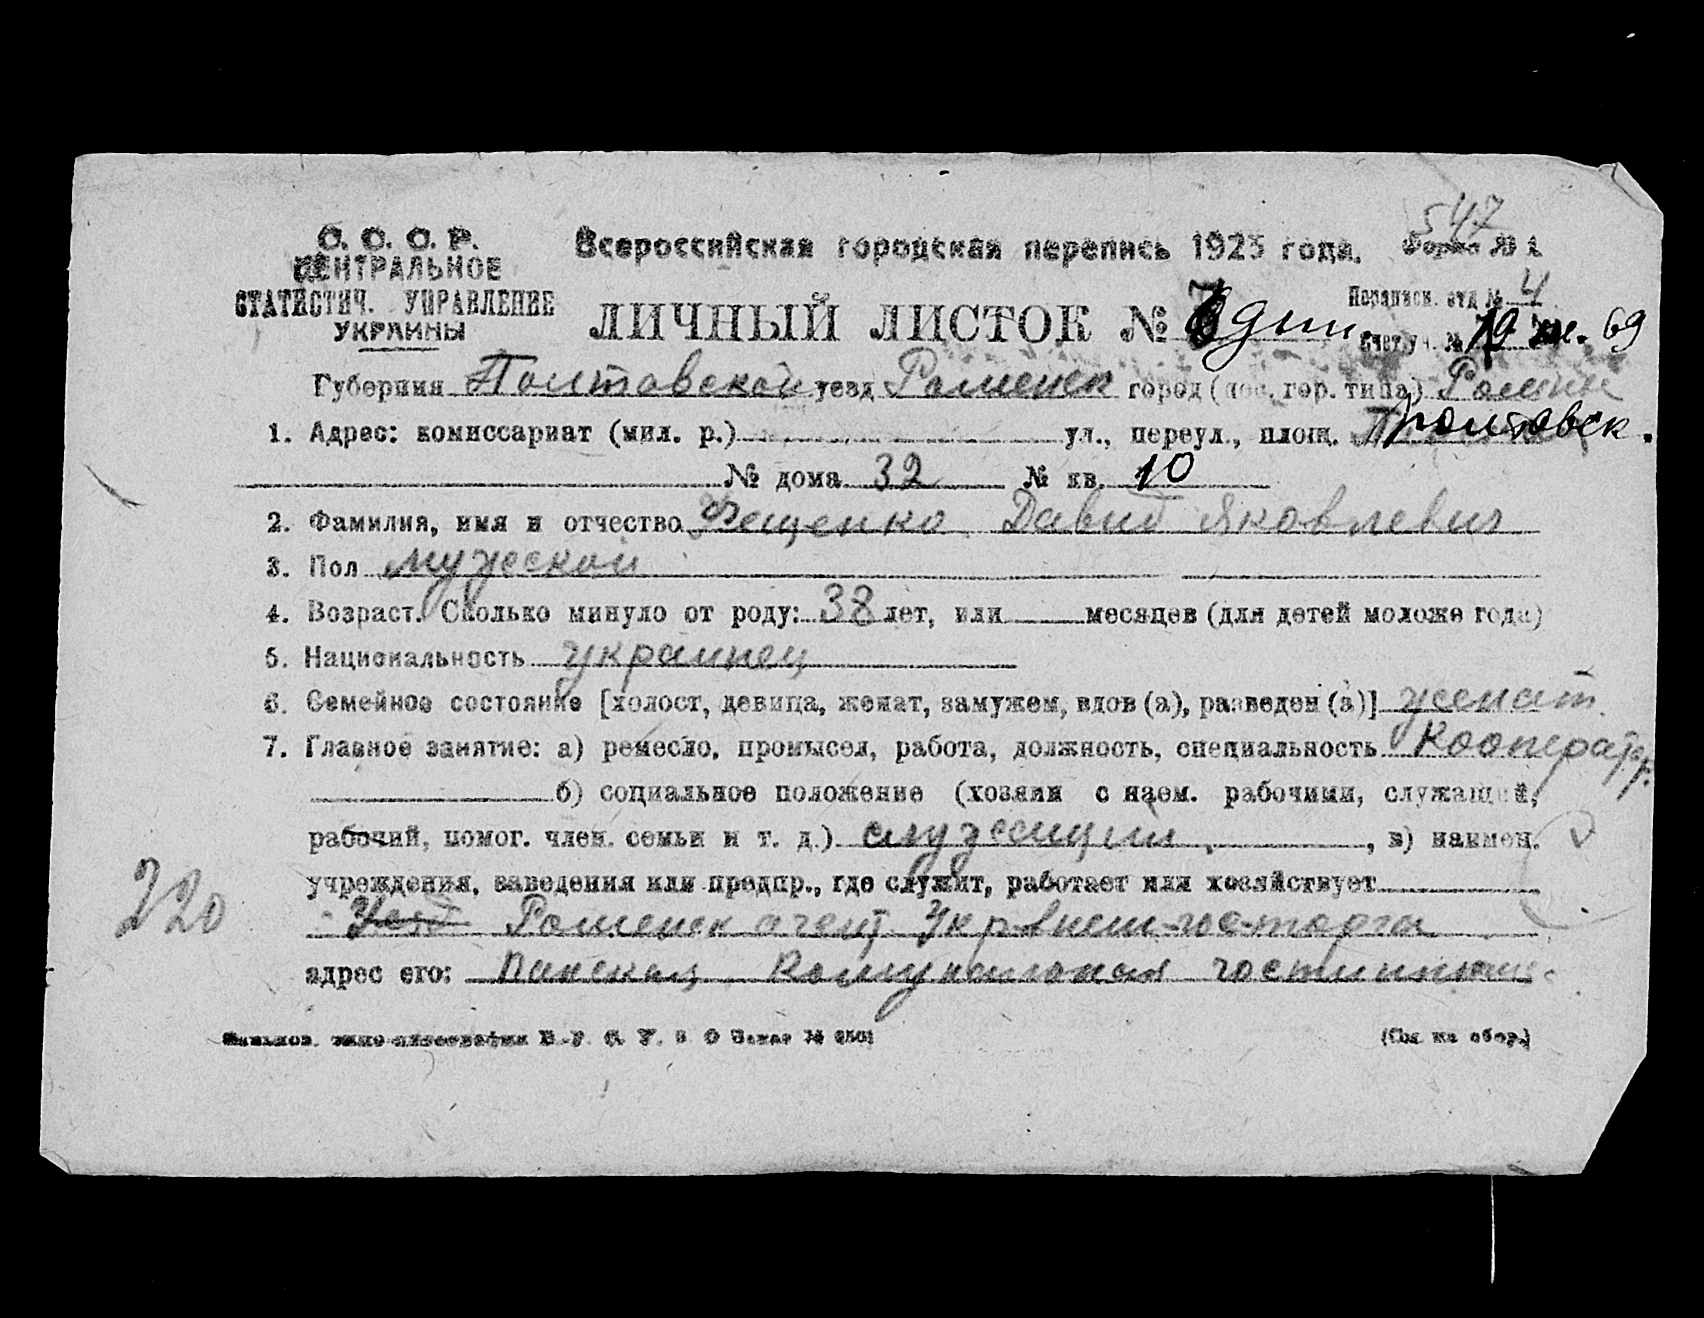 547
С. С. С. Р.
ЦЕНТРАЛЬНОЕ
СТАТИСТИЧ. УПРАВЛЕНИЕ
УКРАИНЫ
Всероссийская городская перепись 1923 года. Форма № 1
ЛИЧНЫЙ ЛИСТОК № Един.
Переписн. отд № 4
Счетн. уч. № 19 69
Губерния Полтавской уезд Роменск город (пос. гор. типа) Ромни
1. Адрес: комиссариат (мил. р.) ул., переул., площ. Полтавск.
№ дома 32 № кв. 10
2. Фамилия, имя и отчество Фещенко Давид Яковлевич
3. Пол мужской
4. Возраст. Сколько минуло от роду: 38 лет, или месяцев (для детей моложе года)
5. Национальность украинец
6. Семейное состояние [холост, девица, женат, замужем, вдов (а), разведен (а)] женат
7. Главное занятие: а) ремесло, промысел, работа, должность, специальность Кооперат
б) социальное положение (хозяин с наем. рабочими, служащий,
рабочий, помог. член. семьи и т. д.) служащий , в) наимен.
учреждения, заведения или предпр., где служит, работает или хозяйствует
220
Роменск агент Укрвнешгосторга
адрес его: Коммунальная гостинница
Заказ № (См. на обор.)